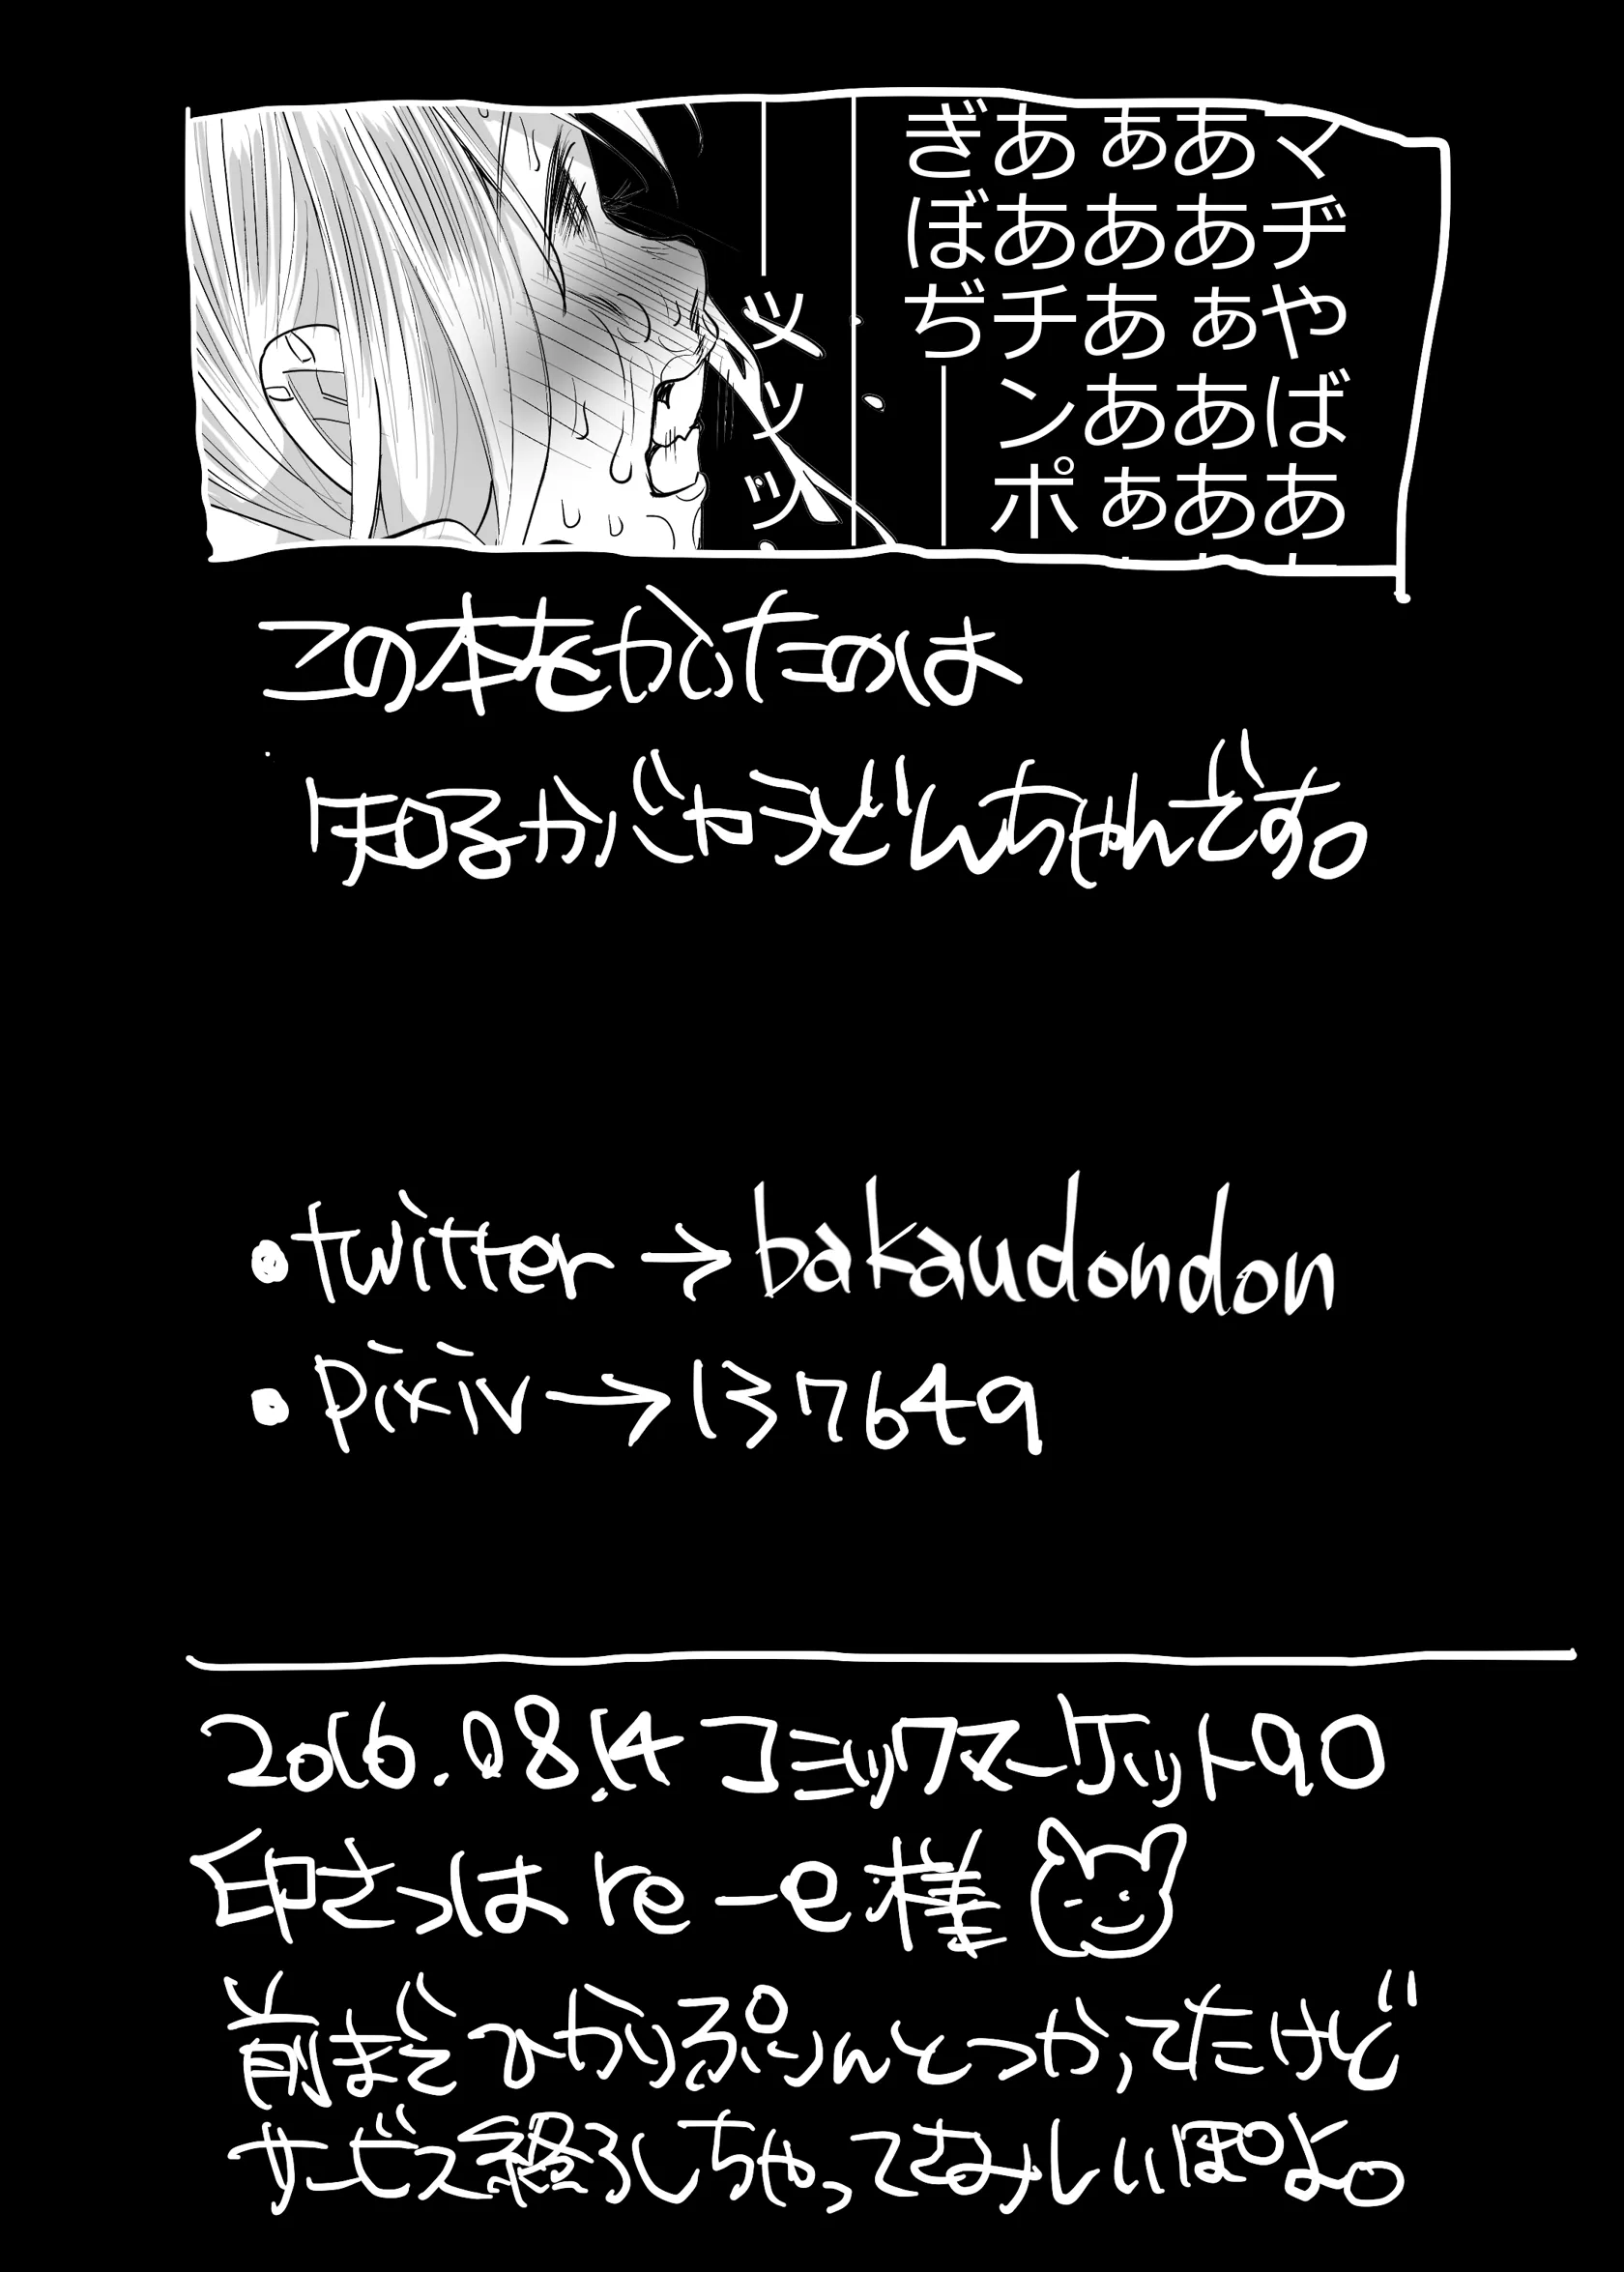 マヂやばあ
ああぁああ
ぁあああぁ
ああチンポ
ぎぼぢ――
――――
――ッッッ
この本をかいたのは
知るかじゃうどんちゃんです。
•twitter→bakaudondon
•pixiv→137649
2016.08.14 コミックマーケット90
印さつは re-e様
前までひかりぷりんとつかってたけど
サービス終ろしちゃってさみしいぽよ。